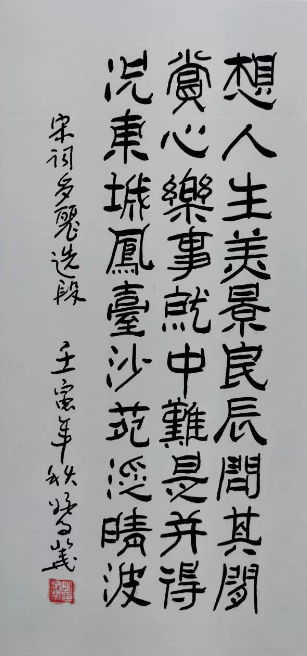 想人生美景良辰問其間
賞心樂事就中難是并得
况東城鳳臺沙苑泛晴波
宋词多麗选段 壬寅年秋